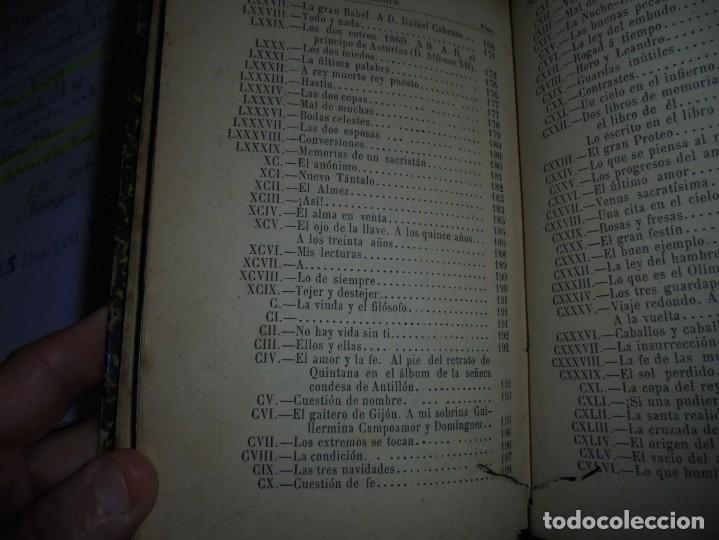 LXXVII.—La gran Babel. A D. Rafael Cabezas. 168
LXXVIII.—Todo y nada. 171
LXXIX.—Los dos cetros. 1860. A S. A. R. el
príncipe de Asturias (D. Alfonso XII)
LXXX.—Los dos miedos. 172
LXXXI.—La última palabra. 175
LXXXIII.—A rey muerto rey puesto. 176
LXXXIII.—Hastío. 177
LXXXIV.—Las dos copas. 177
LXXXV.—Mal de muchas. 178
LXXXVI.—Bodas celestes. 179
LXXXVII.—Las dos esposas. 180
LXXXVIII.—Conversiones. 180
LXXXIX.—Memorias de un sacristán. 180
XC.—El anónimo. 181
XCI.—Nuevo Tántalo. 182
XCII.—El Almez. 183
XCIII.—¡Así!. 183
XCIV.—El alma en venta. 185
XCV.—El ojo de la llave. A los quince años. 186
A los treinta años. 188
XCVI.—Mis lecturas. 189
XCVII.—A. 190
XCVIII.—Lo de siempre. 190
XCIX.—Tejer y destejer. 191
C.—La viuda y el filósofo. 191
CI.— 191
CII.—No hay vida sin ti. 192
CIII.—Ellos y ellas. 192
CIV.—El amor y la fe. Al pie del retrato de
Quintana en el álbum de la señora
condesa de Antillón. 192
CV.—Cuestión de nombre. 193
CVI.—El gaitero de Gijón. A mi sobrina Gui-
llermina Campoamor y Domínguez. 193
CVII.—Los extremos se tocan. 196
CVIII.—La condición. 197
CIX.—Las tres navidades. 198
CX.—Cuestión de fe.
CXVI.—La ley del embudo.
CXVII.—Bogad á tiempo.
CXVIII.—Hero y Leandro
CXIX.—Guardas inútiles
CXX.—Contrastes.
CXXI.—Un cielo en el infierno.
CXXII.—Dos libros de memoria
el libro de él
Lo escrito en el libro
CXXIII.—El gran Proteo
CXXIV.—Lo que se piensa al
CXXV.—Los progresos del am
CXXVI.—El último amor.
CXXVII.—Venus sacratísima.
CXXVIII.—Una cita en el cielo
CXXIX.—Rosas y fresas.
CXXX.—El gran festín.
CXXXI.—El buen ejemplo.
CXXXII.—La ley del hambre
CXXXIII.—Lo que es el Olim
CXXXIV.—Los tres guardap
CXXXV.—Viaje redondo.
A la vuelta
CXXXVI.—Caballos y cabal
CXXXVII.—La insurrección
CXXXVIII.—La fe de las mu
CXXXIX.—El sol perdido.
CXL.—La copa del rey
CXLI.—¡Si una pudier
CXLII.—La santa reali
CXLIII.—La cruzada de
CXLIV.—El origen del
CXLV.—El vacío del a
CXLVI.—Lo que humi
todocoleccion.net